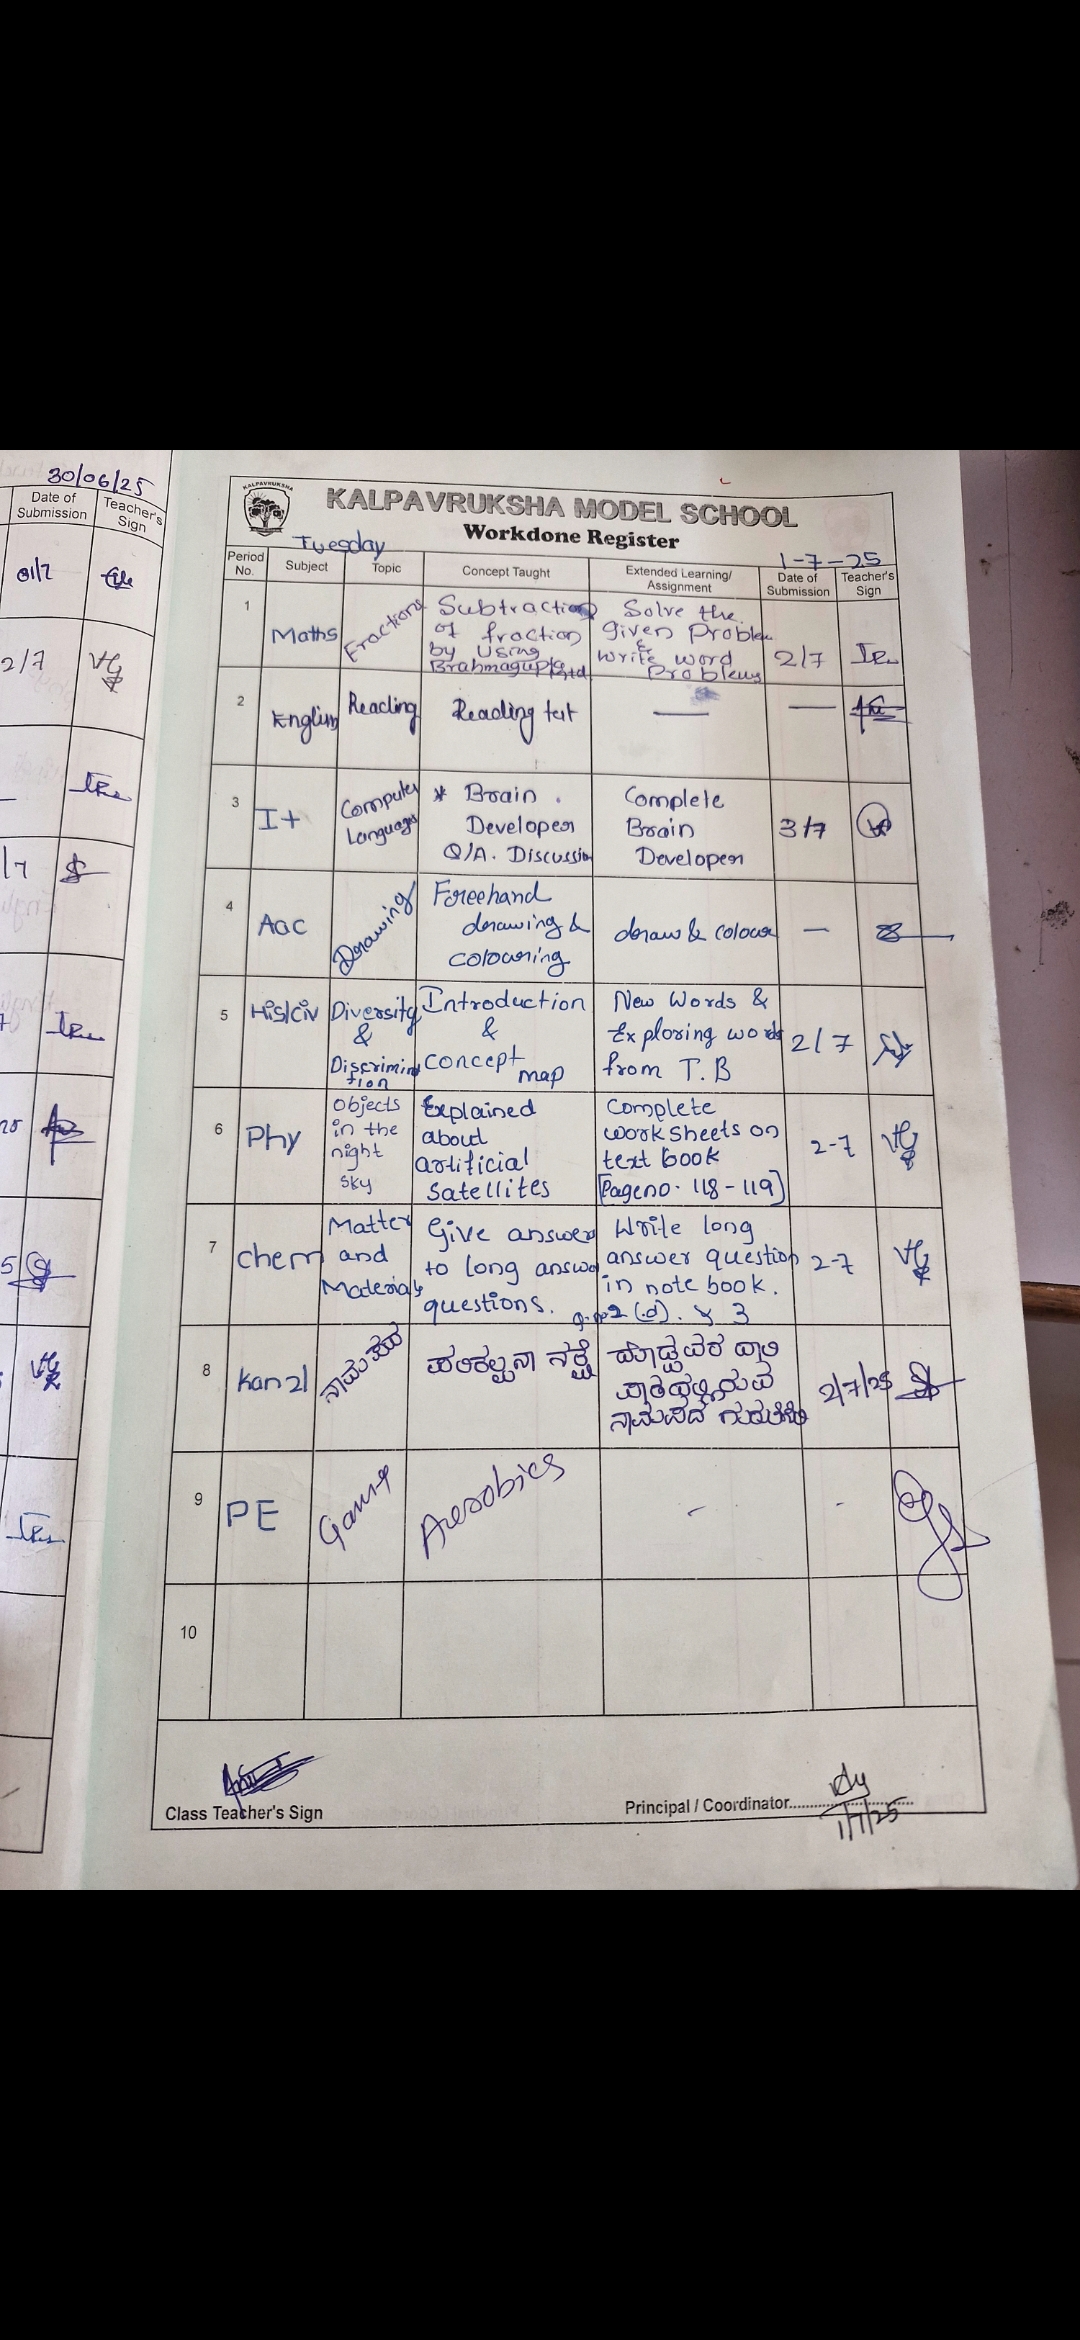 30/06/25
Date of Submission
Teacher's Sign
01/7
2/7
KALPAVRUKSHA
KALPAVRUKSHA MODEL SCHOOL
Workdone Register
Tuesday
1-7-25
Period No.
Subject
Topic
Concept Taught
Extended Learning/ Assignment
Date of Submission
Teacher's Sign
1
Maths
Fractions
Subtraction
of fraction
by using
Brahmagupta
Solve the
given Problem
&
write word
Problems
2/7
2
English
Reading
Reading test
—
—
3
I+
Computer
Languages
* Brain
Developer
Q/A. Discussion
Complete
Brain
Developer
3/7
4
Aac
Drawing
Freehand
drawing &
colouring
draw & colour
—
5
His/Civ
Diversity
&
Discrimin
tion
Introduction
&
concept
map
New Words &
Exploring words
from T.B
2/7
6
Phy
objects
in the
night
sky
Explained
about
artificial
satellites
Complete
work sheets on
text book
[Page no. 118-119]
2-7
7
chem
Matter
and
Materials
Give answer
to long answer
questions.
Write long
answer question
in note book.
2-7
8
kan 2l
ನಾಮಪದ
ಪರಿಕಲ್ಪನಾ ನಕ್ಷೆ
2/7/25
9
PE
Game
Aerobics
-
-
10
Class Teacher's Sign
Principal / Coordinator
1/7/25